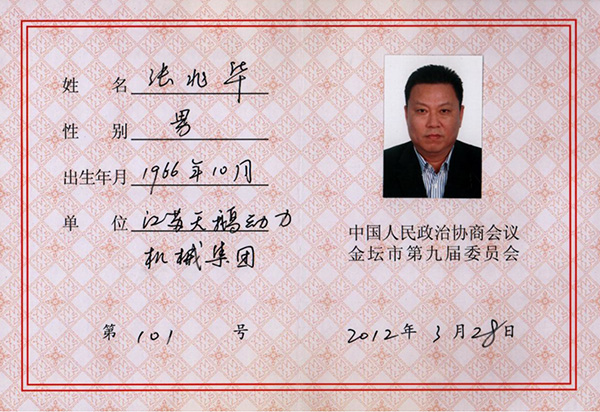 姓 名 张兆华
性 别 男
出生年月 1966年10月
单 位 江苏天鹅动力
机械集团
第 101 号
中国人民政治协商会议
金坛市第九届委员会
2012年 3月28日